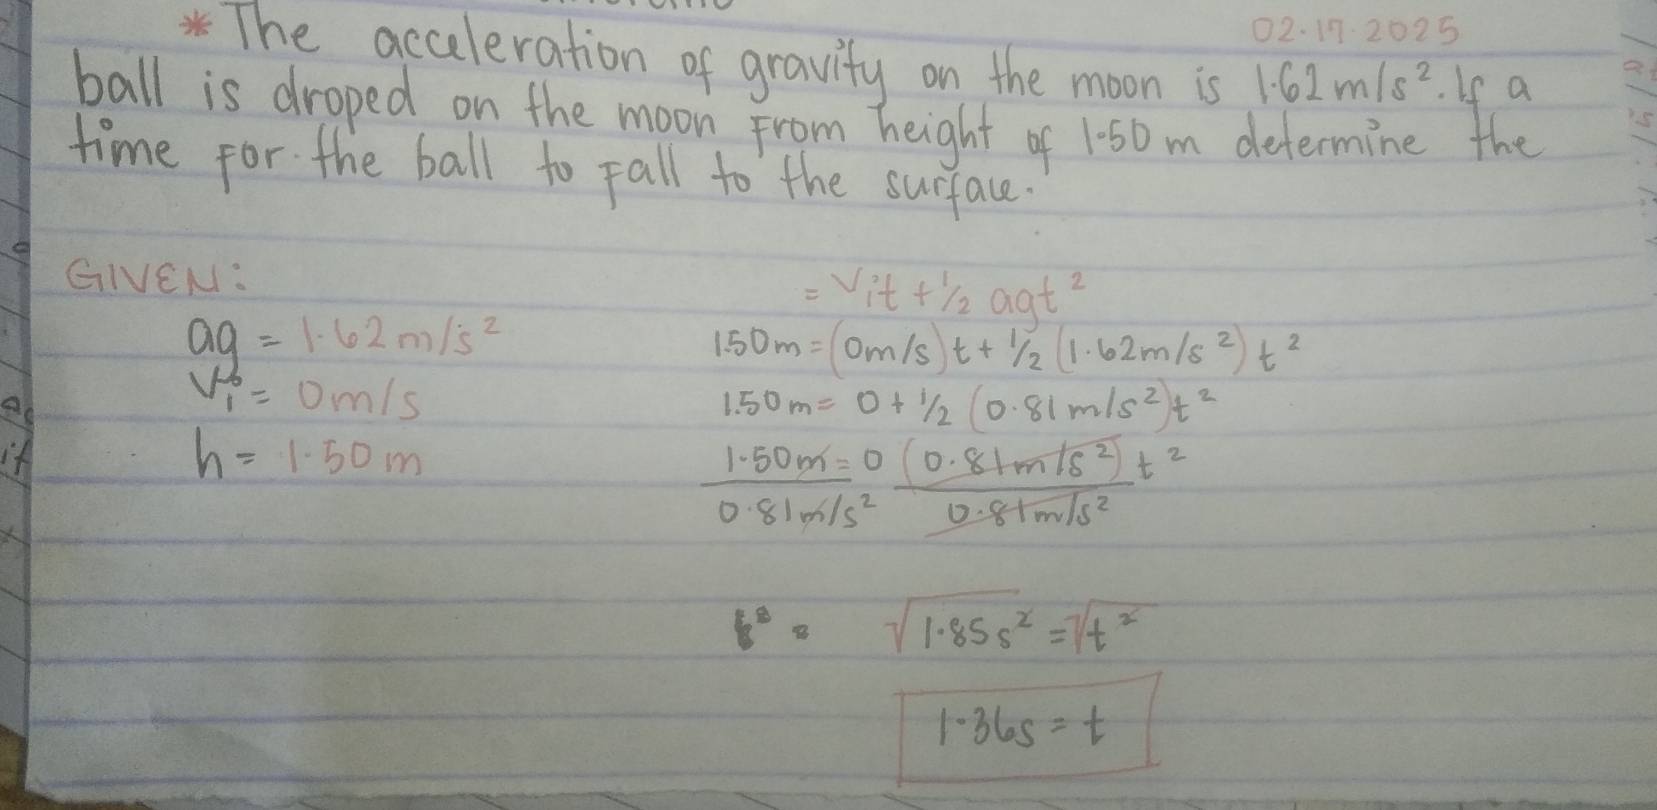 02.17.2025
* The acceleration of gravity on the moon is 1.62 m/s². If a
ball is droped on the moon From height of 1.50 m determine the
time For the ball to Fall to the surface.
GIVEN:
ag = 1.62 m/s²
Vi = 0m/s
h = 1.50 m
= Vit + 1/2 agt²
1.50m = (0m/s) t + 1/2 (1.62m/s²) t²
1.50m = 0 + 1/2 (0.81m/s²)t²
1.50m = 0 (0.81m/s²) t²
0.81m/s² 0.81m/s²
√1.85s² = √t²
1.36s = t